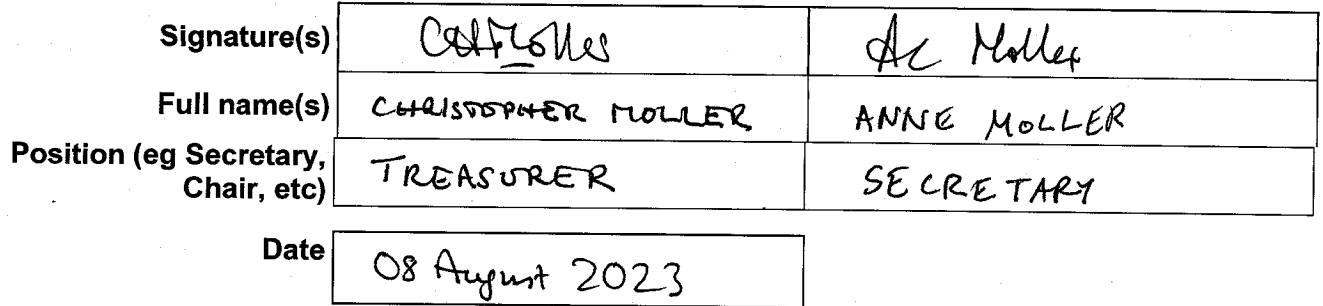 Signature(s) CHMoller AC Moller
Full name(s) CHRISTOPHER MOLLER ANNE MOLLER
Position (eg Secretary, Chair, etc) TREASURER SECRETARY
Date 08 August 2023